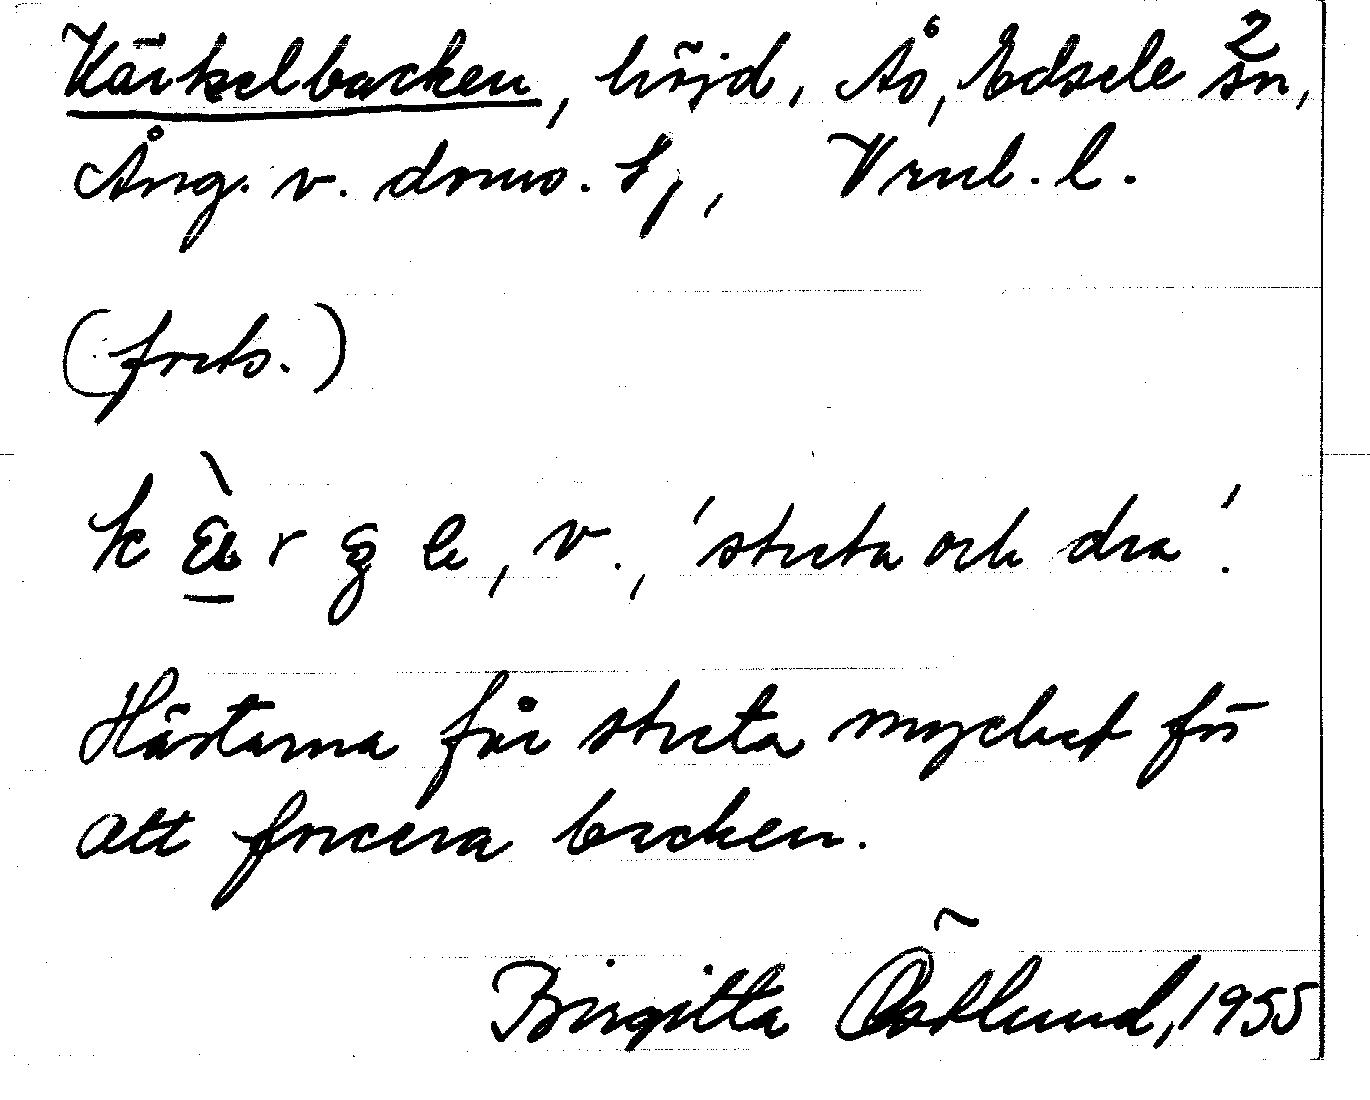 Kärkelbacken, höjd, Ås, Edsele sn, 2
Ång. v. domo. Vrnl. l.
(forts.)
kæ̀rgɐ, v., 'streta och dra'.
Hästarna får streta mycket för
att forcera backen.
Birgitta Östlund, 1955